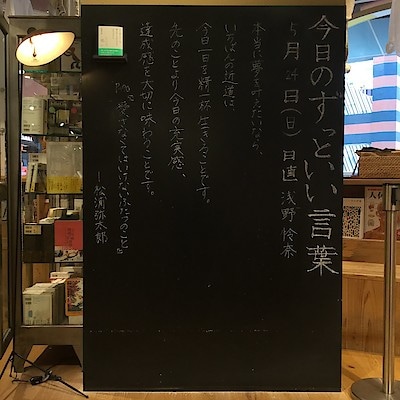 今日のずっといい言葉
5月24日(日) 日直 浅野怜奈
本当に夢を叶えたいなら、
いちばんの近道は
今日一日を精一杯生きることです。
先のことより今日の充実感、
達成感を大切に味わうことです。
P.110『愛さなくてはいけないふたつのこと』
―松浦弥太郎